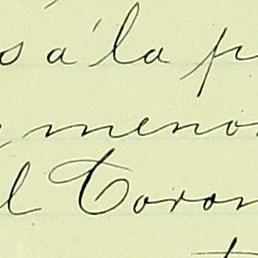 s á la p
menor
l Coron